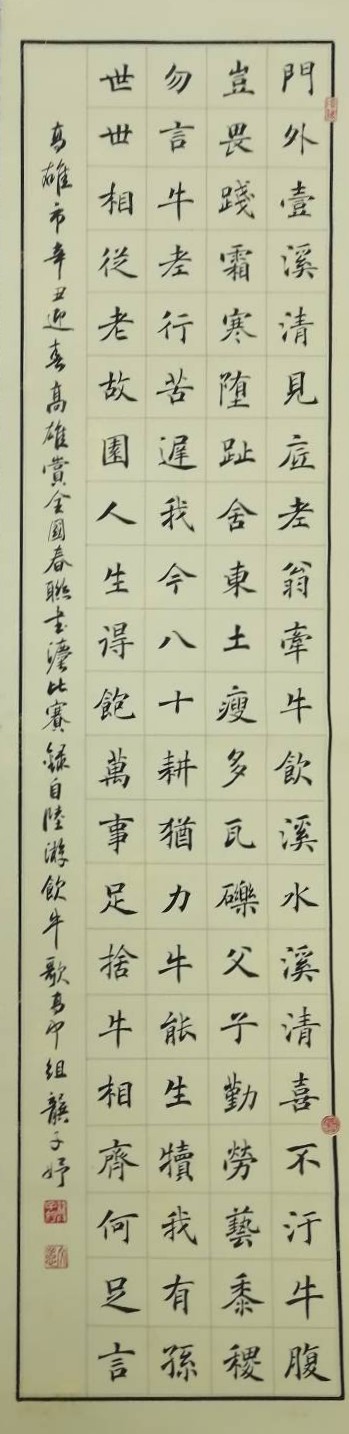 門外壹溪清見底老翁牽牛飲溪水溪清喜不汙牛腹
豈畏踐霜寒墮趾舍東土瘦多瓦礫父子勤勞藝黍稷
勿言牛老行苦遲我今八十耕猶力牛能生犢我有孫
世世相從老故園人生得飽萬事足捨牛相齊何足言
高雄市辛丑迎春高雄賞全國春聯書法比賽錄自陸游飲牛歌高中組龔子妤